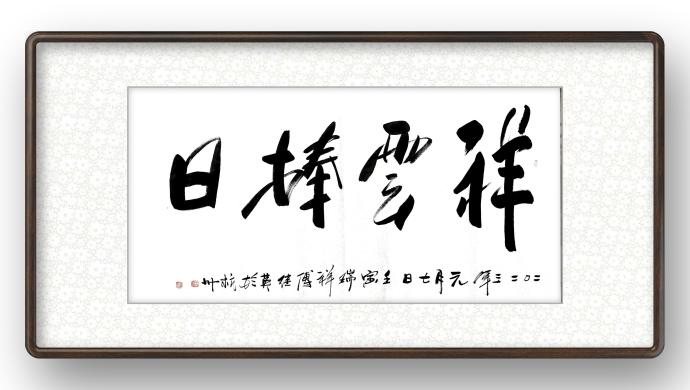 祥雲捧日
二〇二三年元月七日壬寅瑞祥傅佳英於杭州